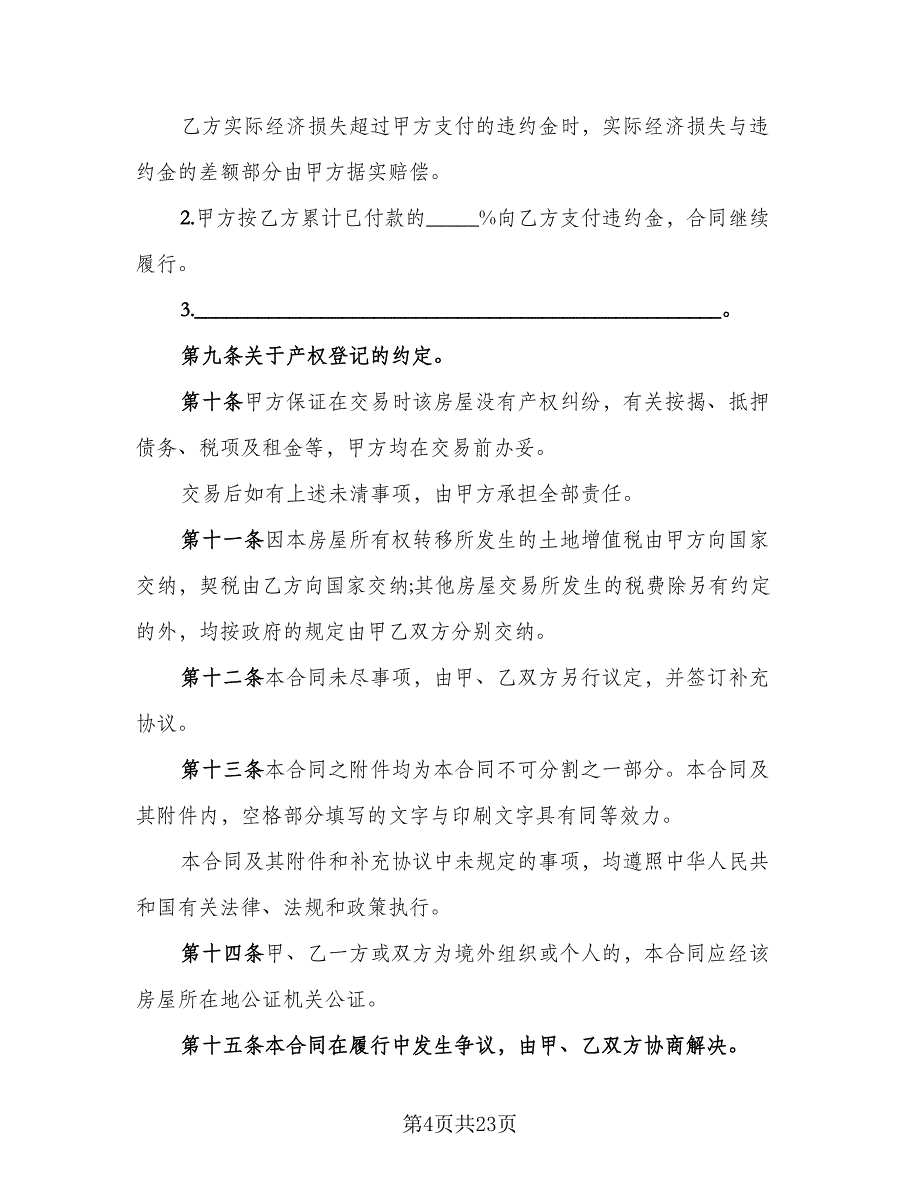 乙方实际经济损失超过甲方支付的违约金时，实际经济损失与违
约金的差额部分由甲方据实赔偿。
2.甲方按乙方累计已付款的_____%向乙方支付违约金，合同继续
履行。
3.__________________________________________________。
第九条关于产权登记的约定。
第十条甲方保证在交易时该房屋没有产权纠纷，有关按揭、抵押
债务、税项及租金等，甲方均在交易前办妥。
交易后如有上述未清事项，由甲方承担全部责任。
第十一条因本房屋所有权转移所发生的土地增值税由甲方向国家
交纳，契税由乙方向国家交纳;其他房屋交易所发生的税费除另有约定
的外，均按政府的规定由甲乙双方分别交纳。
第十二条本合同未尽事项，由甲、乙双方另行议定，并签订补充
协议。
第十三条本合同之附件均为本合同不可分割之一部分。本合同及
其附件内，空格部分填写的文字与印刷文字具有同等效力。
本合同及其附件和补充协议中未规定的事项，均遵照中华人民共
和国有关法律、法规和政策执行。
第十四条甲、乙一方或双方为境外组织或个人的，本合同应经该
房屋所在地公证机关公证。
第十五条本合同在履行中发生争议，由甲、乙双方协商解决。
第4页共23页